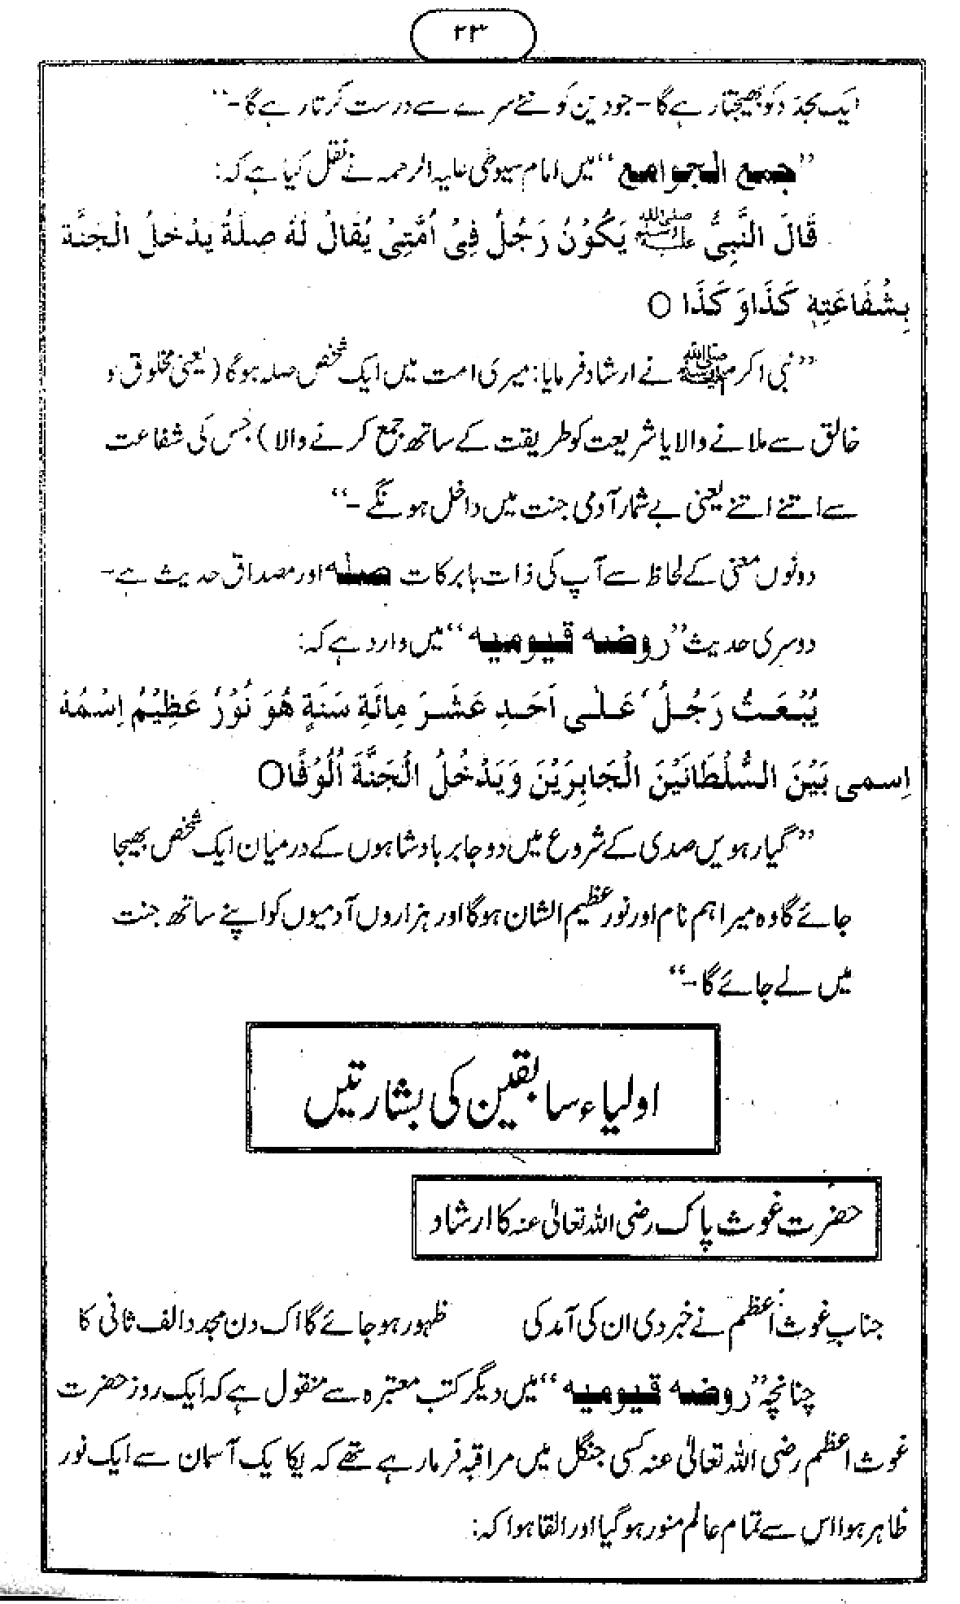 ۲۳
ایک مجدد کو بھیجتا رہے گا - جو دین کو نئے سرے سے درست کرتا رہے گا -"
"جمع الجوامع" میں امام سیوطی علیہ الرحمہ نے نقل کیا ہے کہ:
قَالَ النَّبِیُّ ﷺ یَکُوْنُ رَجُلٌ فِیْ اُمَّتِیْ یُقَالُ لَهٗ صِلَةُ یَدْخُلُ الْجَنَّةَ
بِشُفَاعَتِهٖ کَذَا وَ کَذَا ○
"نبی اکرم ﷺ نے ارشاد فرمایا: میری امت میں ایک شخص صلہ ہوگا (یعنی مخلوق و
خالق سے ملانے والا یا شریعت کو طریقت کے ساتھ جمع کرنے والا) جس کی شفاعت
سے اتنے اتنے یعنی بے شمار آدمی جنت میں داخل ہونگے -"
دونوں معنی کے لحاظ سے آپ کی ذات بابرکات صلہ اور مصداق حدیث ہے -
دوسری حدیث "روضہ قیومیہ" میں وارد ہے کہ:
یُبْعَثُ رَجُلٌ عَلٰی اَحَدِ عَشَرَ مِائَةِ سَنَةٍ هُوَ نُوْرٌ عَظِیْمٌ اِسْمُهٗ
اِسمی بَیْنَ السُّلْطَانَیْنَ الْجَابِرَیْنَ وَیَدْخُلُ الْجَنَّةَ اُلُوْفًا○
"گیارہویں صدی کے شروع میں دو جابر بادشاہوں کے درمیان ایک شخص بھیجا
جائے گا وہ میرا ہم نام اور نور عظیم الشان ہوگا اور ہزاروں آدمیوں کو اپنے ساتھ جنت
میں لے جائے گا -"
اولیاء سابقین کی بشارتیں
حضرت غوث پاک رضی اللہ تعالیٰ عنہ کا ارشاد
جناب غوث اعظم نے خبر دی ان کی آمد کی ظہور ہو جائے گا اک دن مجدد الف ثانی کا
چنانچہ "روضہ قیومیہ" میں دیگر کتب معتبرہ سے منقول ہے کہ ایک روز حضرت
غوث اعظم رضی اللہ تعالیٰ عنہ کسی جنگل میں مراقبہ فرما رہے تھے کہ یکایک آسمان سے ایک نور
ظاہر ہوا اس سے تمام عالم منور ہو گیا اور القا ہوا کہ: